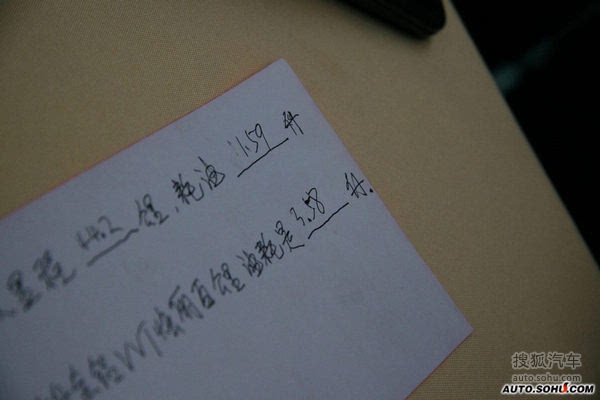 里程 44.2 公里，耗油 1.59 升
VVT炫丽百公里油耗是3.58升.
搜狐汽车
auto.sohu.com
AUTO.SOHU.COM